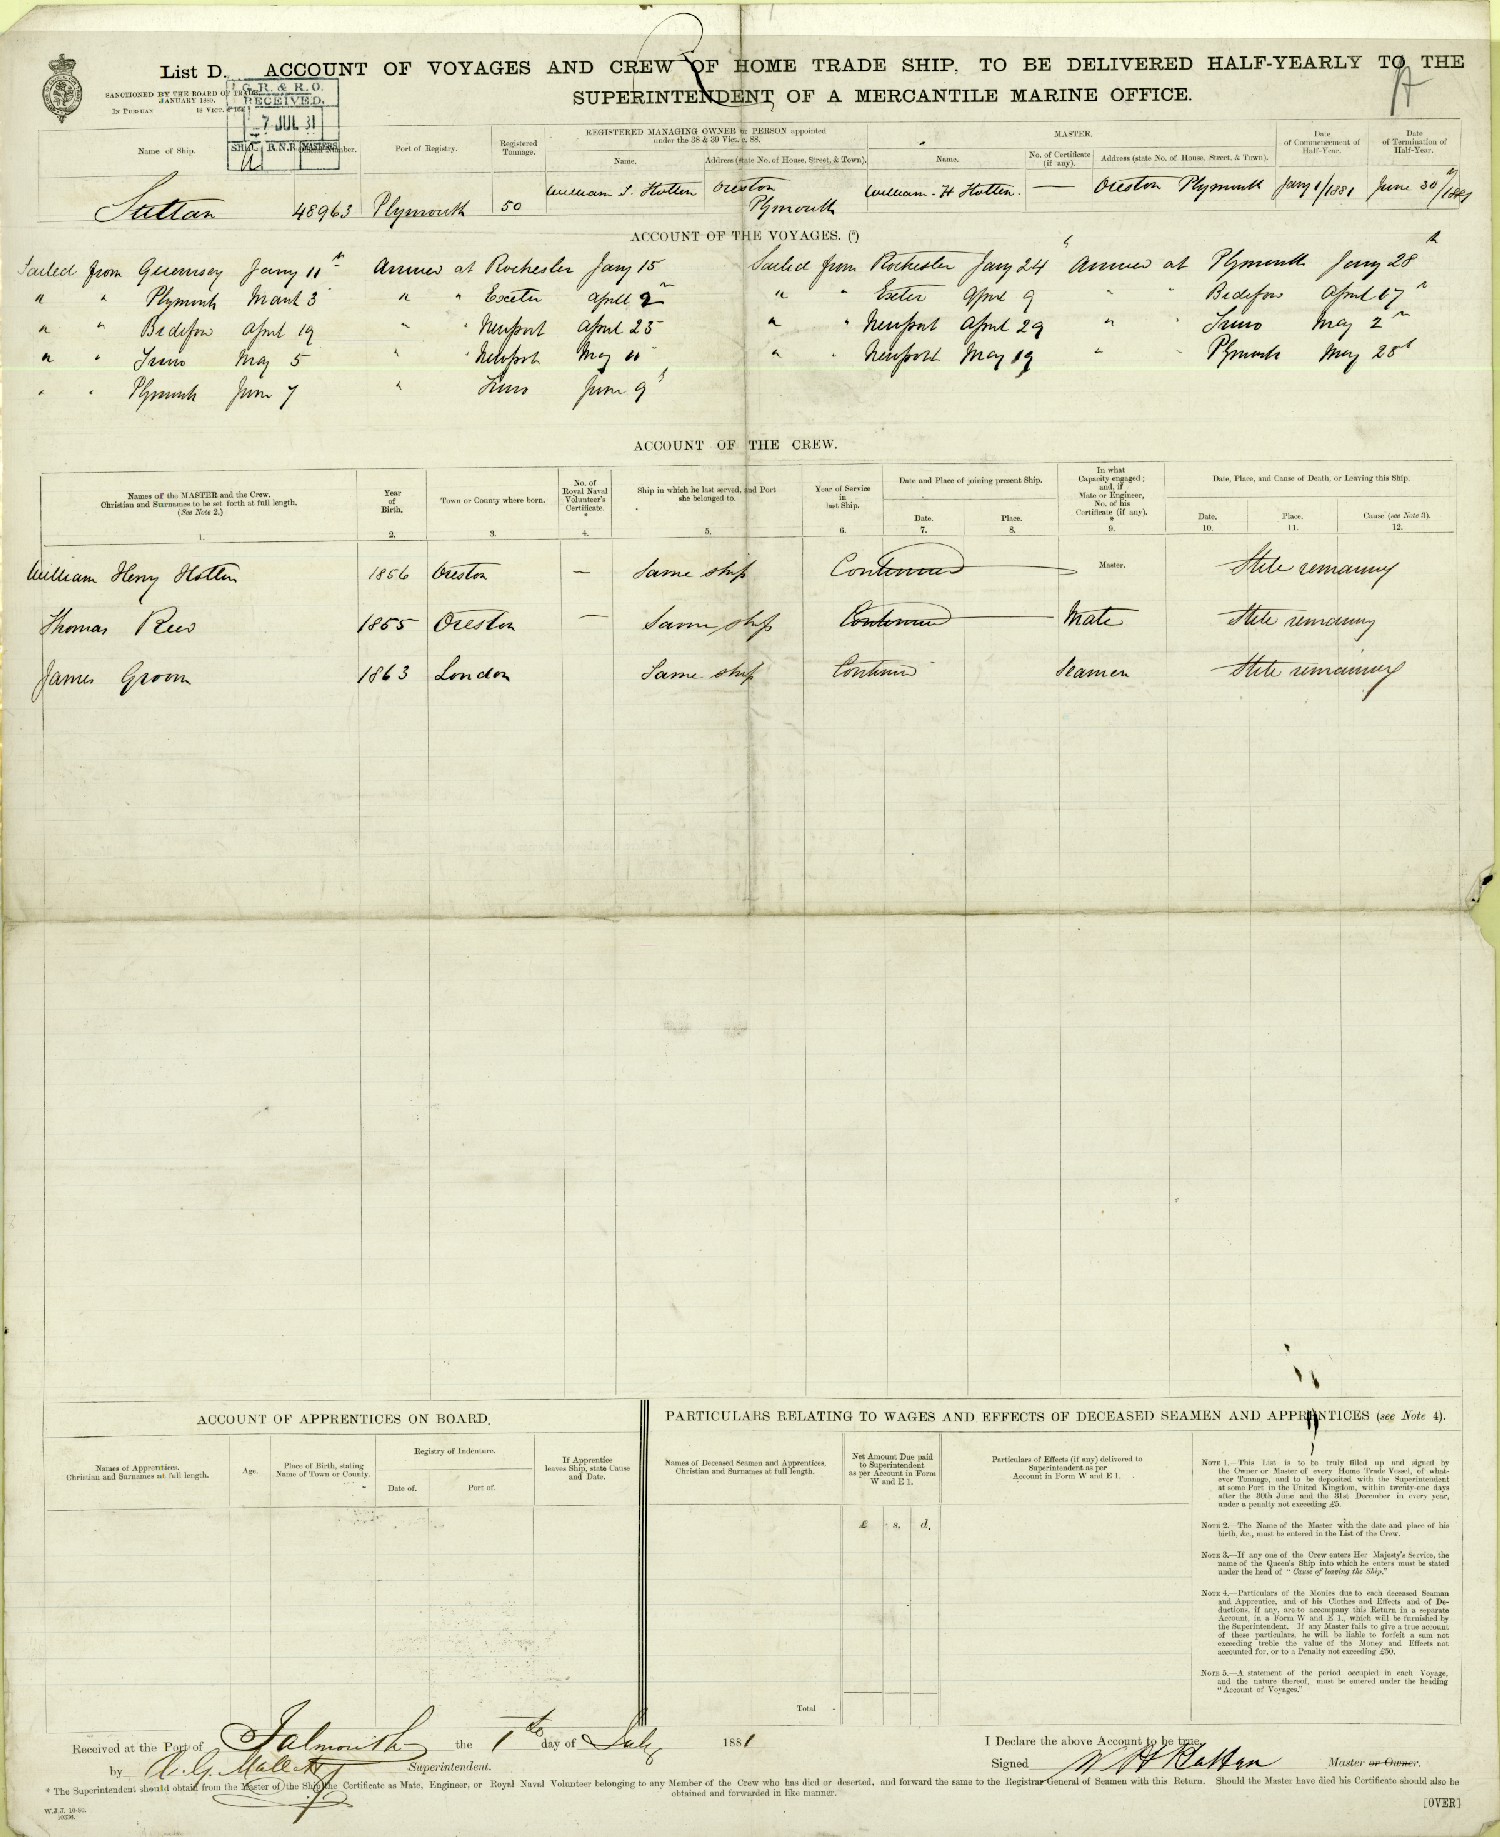 List D. ACCOUNT OF VOYAGES AND CREW OF HOME TRADE SHIP, TO BE DELIVERED HALF-YEARLY TO THE
SUPERINTENDENT OF A MERCANTILE MARINE OFFICE.
SANCTIONED BY THE BOARD OF TRADE
JANUARY 1880.
G. R. & R. O.
RECEIVED.
7 JUL 81
R.N.R. MASTERS
Name of Ship.
Port of Registry.
Registered Tonnage.
REGISTERED MANAGING OWNER or PERSON appointed under the 38 & 39 Vic., c. 88.
Name.
Address (state No. of House, Street, & Town).
MASTER.
Name.
No. of Certificate (if any).
Address (state No. of House, Street, & Town).
Date of Commencement of Half-Year.
Date of Termination of Half-Year.
Sultan 48963 Plymouth 50 William Hotten Oreston Plymouth William H Hotten — Oreston Plymouth Jany 1/1881 June 30th/1881
ACCOUNT OF THE VOYAGES. (5)
Sailed from Guernsey Jany 11th Arrived at Rochester Jany 15 Sailed from Rochester Jany 24 Arrived at Plymouth Jany 28th
" " Plymouth March 3 " " Exeter April 2 " " Exeter April 9 " " Bideford April 17th
" " Bideford April 19 " " Newport April 25 " " Newport April 29 " " Truro May 2
" " Truro May 5 " " Newport May 11 " " Newport May 19 " " Plymouth May 28th
" " Plymouth June 7 " Truro June 9
ACCOUNT OF THE CREW.
Names of the MASTER and the Crew.
Christian and Surnames to be set forth at full length.
(See Note 2.)
1.
Year of Birth.
2.
Town or County where born.
3.
No. of Royal Naval Volunteer's Certificate.
*
4.
Ship in which he last served, and Port she belonged to.
5.
Year of Service in last Ship.
6.
Date and Place of joining present Ship.
Date.
7.
Place.
8.
In what Capacity engaged; and, if Mate or Engineer, No. of his Certificate (if any).
*
9.
Date, Place, and Cause of Death, or Leaving this Ship.
Date.
10.
Place.
11.
Cause (see Note 3).
12.
William Henry Hotten 1856 Oreston — Same ship Continued Master. Still remaining
Thomas 1855 Oreston — Same ship Continued Mate Still remaining
James Groom 1863 London Same ship Continued Seamen Still remaining
ACCOUNT OF APPRENTICES ON BOARD.
Names of Apprentices.
Christian and Surnames at full length.
Age.
Place of Birth, stating Name of Town or County.
Registry of Indenture.
Date of.
Port of.
If Apprentice leaves Ship, state Cause and Date.
PARTICULARS RELATING TO WAGES AND EFFECTS OF DECEASED SEAMEN AND APPRENTICES (see Note 4).
Names of Deceased Seamen and Apprentices.
Christian and Surnames at full length.
Net Amount Due paid to Superintendent as per Account in Form W and E 1.
£ s. d.
Particulars of Effects (if any) delivered to
Superintendent as per
Account in Form W and E 1.
Total
NOTE 1.—This List is to be truly filled up and signed by
the Owner or Master of every Home Trade Vessel, of what-
ever Tonnage, and to be deposited with the Superintendent
at some Port in the United Kingdom, within twenty-one days
after the 30th June and the 31st December in every year,
under a penalty not exceeding £5.
NOTE 2.—The Name of the Master with the date and place of his
birth, &c., must be entered in the List of the Crew.
NOTE 3.—If any one of the Crew enters Her Majesty's Service, the
name of the Queen's Ship into which he enters must be stated
under the head of "Cause of leaving the Ship."
NOTE 4.—Particulars of the Monies due to each deceased Seaman
and Apprentice, and of his Clothes and Effects and of De-
ductions, if any, are to accompany this Return in a separate
Account, in a Form W and E 1., which will be furnished by
the Superintendent. If any Master fails to give a true account
of these particulars, he will be liable to forfeit a sum not
exceeding treble the value of the Money and Effects not
accounted for, or to a Penalty not exceeding £50.
NOTE 5.—A statement of the period occupied in each Voyage,
and the nature thereof, must be entered under the heading
"Account of Voyages."
Received at the Port of Falmouth the 1st day of July 1881
by Superintendent.
I Declare the above Account to be true,
Signed W H Hotten Master or Owner.
* The Superintendent should obtain from the Master of the Ship the Certificate as Mate, Engineer, or Royal Naval Volunteer belonging to any Member of the Crew who has died or deserted, and forward the same to the Registrar General of Seamen with this Return. Should the Master have died his Certificate should also be
obtained and forwarded in like manner.
[OVER]